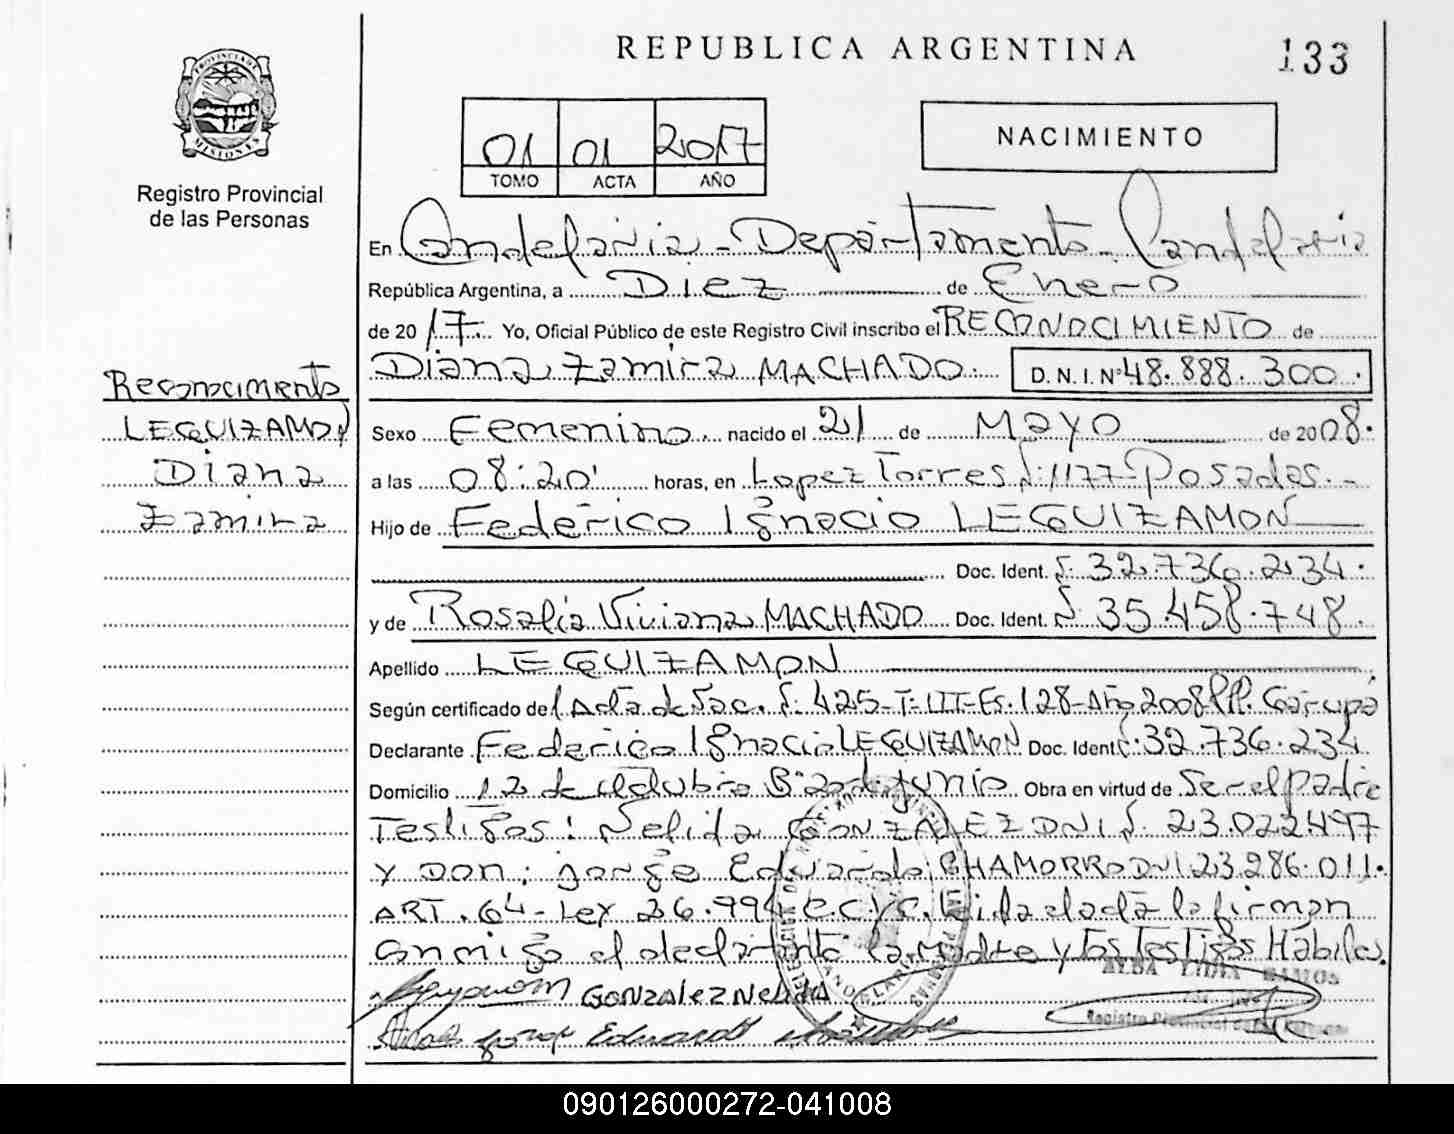 REPUBLICA ARGENTINA
133
PROVINCIA DE
MISIONES
Registro Provincial
de las Personas
01 01 2017
TOMO ACTA AÑO
NACIMIENTO
En Candelaria - Departamento - Candelaria
República Argentina, a Diez de Enero
de 2017 Yo, Oficial Público de este Registro Civil inscribo el RECONOCIMIENTO de
Diana Zamira MACHADO. D.N.I. Nº 48.888.300.
Reconocimiento
LEGUIZAMON
Diana
Zamira
Sexo Femenino nacido el 21 de MAYO de 2008.
a las 08:20' horas, en Lopez Torres Nº 1177 - Posadas. -
Hijo de Federico Ignacio LEGUIZAMON
Doc. Ident. Nº 32.736.234.
y de Rosalia Viviana MACHADO Doc. Ident. Nº 35.458.748.
Apellido LEGUIZAMON
Según certificado de Acta de Nac. Nº 425 - T: III - Fs. 128 - Año 2008 RP. Garupá
Declarante Federico Ignacio LEGUIZAMON Doc. Ident 32.736.234
Domicilio 12 de Bº 20 de junio Obra en virtud de Ser el Padre
Testigos: Nelida GONZALEZ DNI Nº 23.022.497
y DON: jorge Eduardo CHAMORRO DNI 23.286.011.
ART. 64 - Ley 26.994 C.C. y C. leida el acta la firman
conmigo el declarante la Madre y los Testigos Habiles.
GONZALEZ NELIDA
RAMOS
Registro Provincial de las Personas
Jorge Eduardo
090126000272-041008